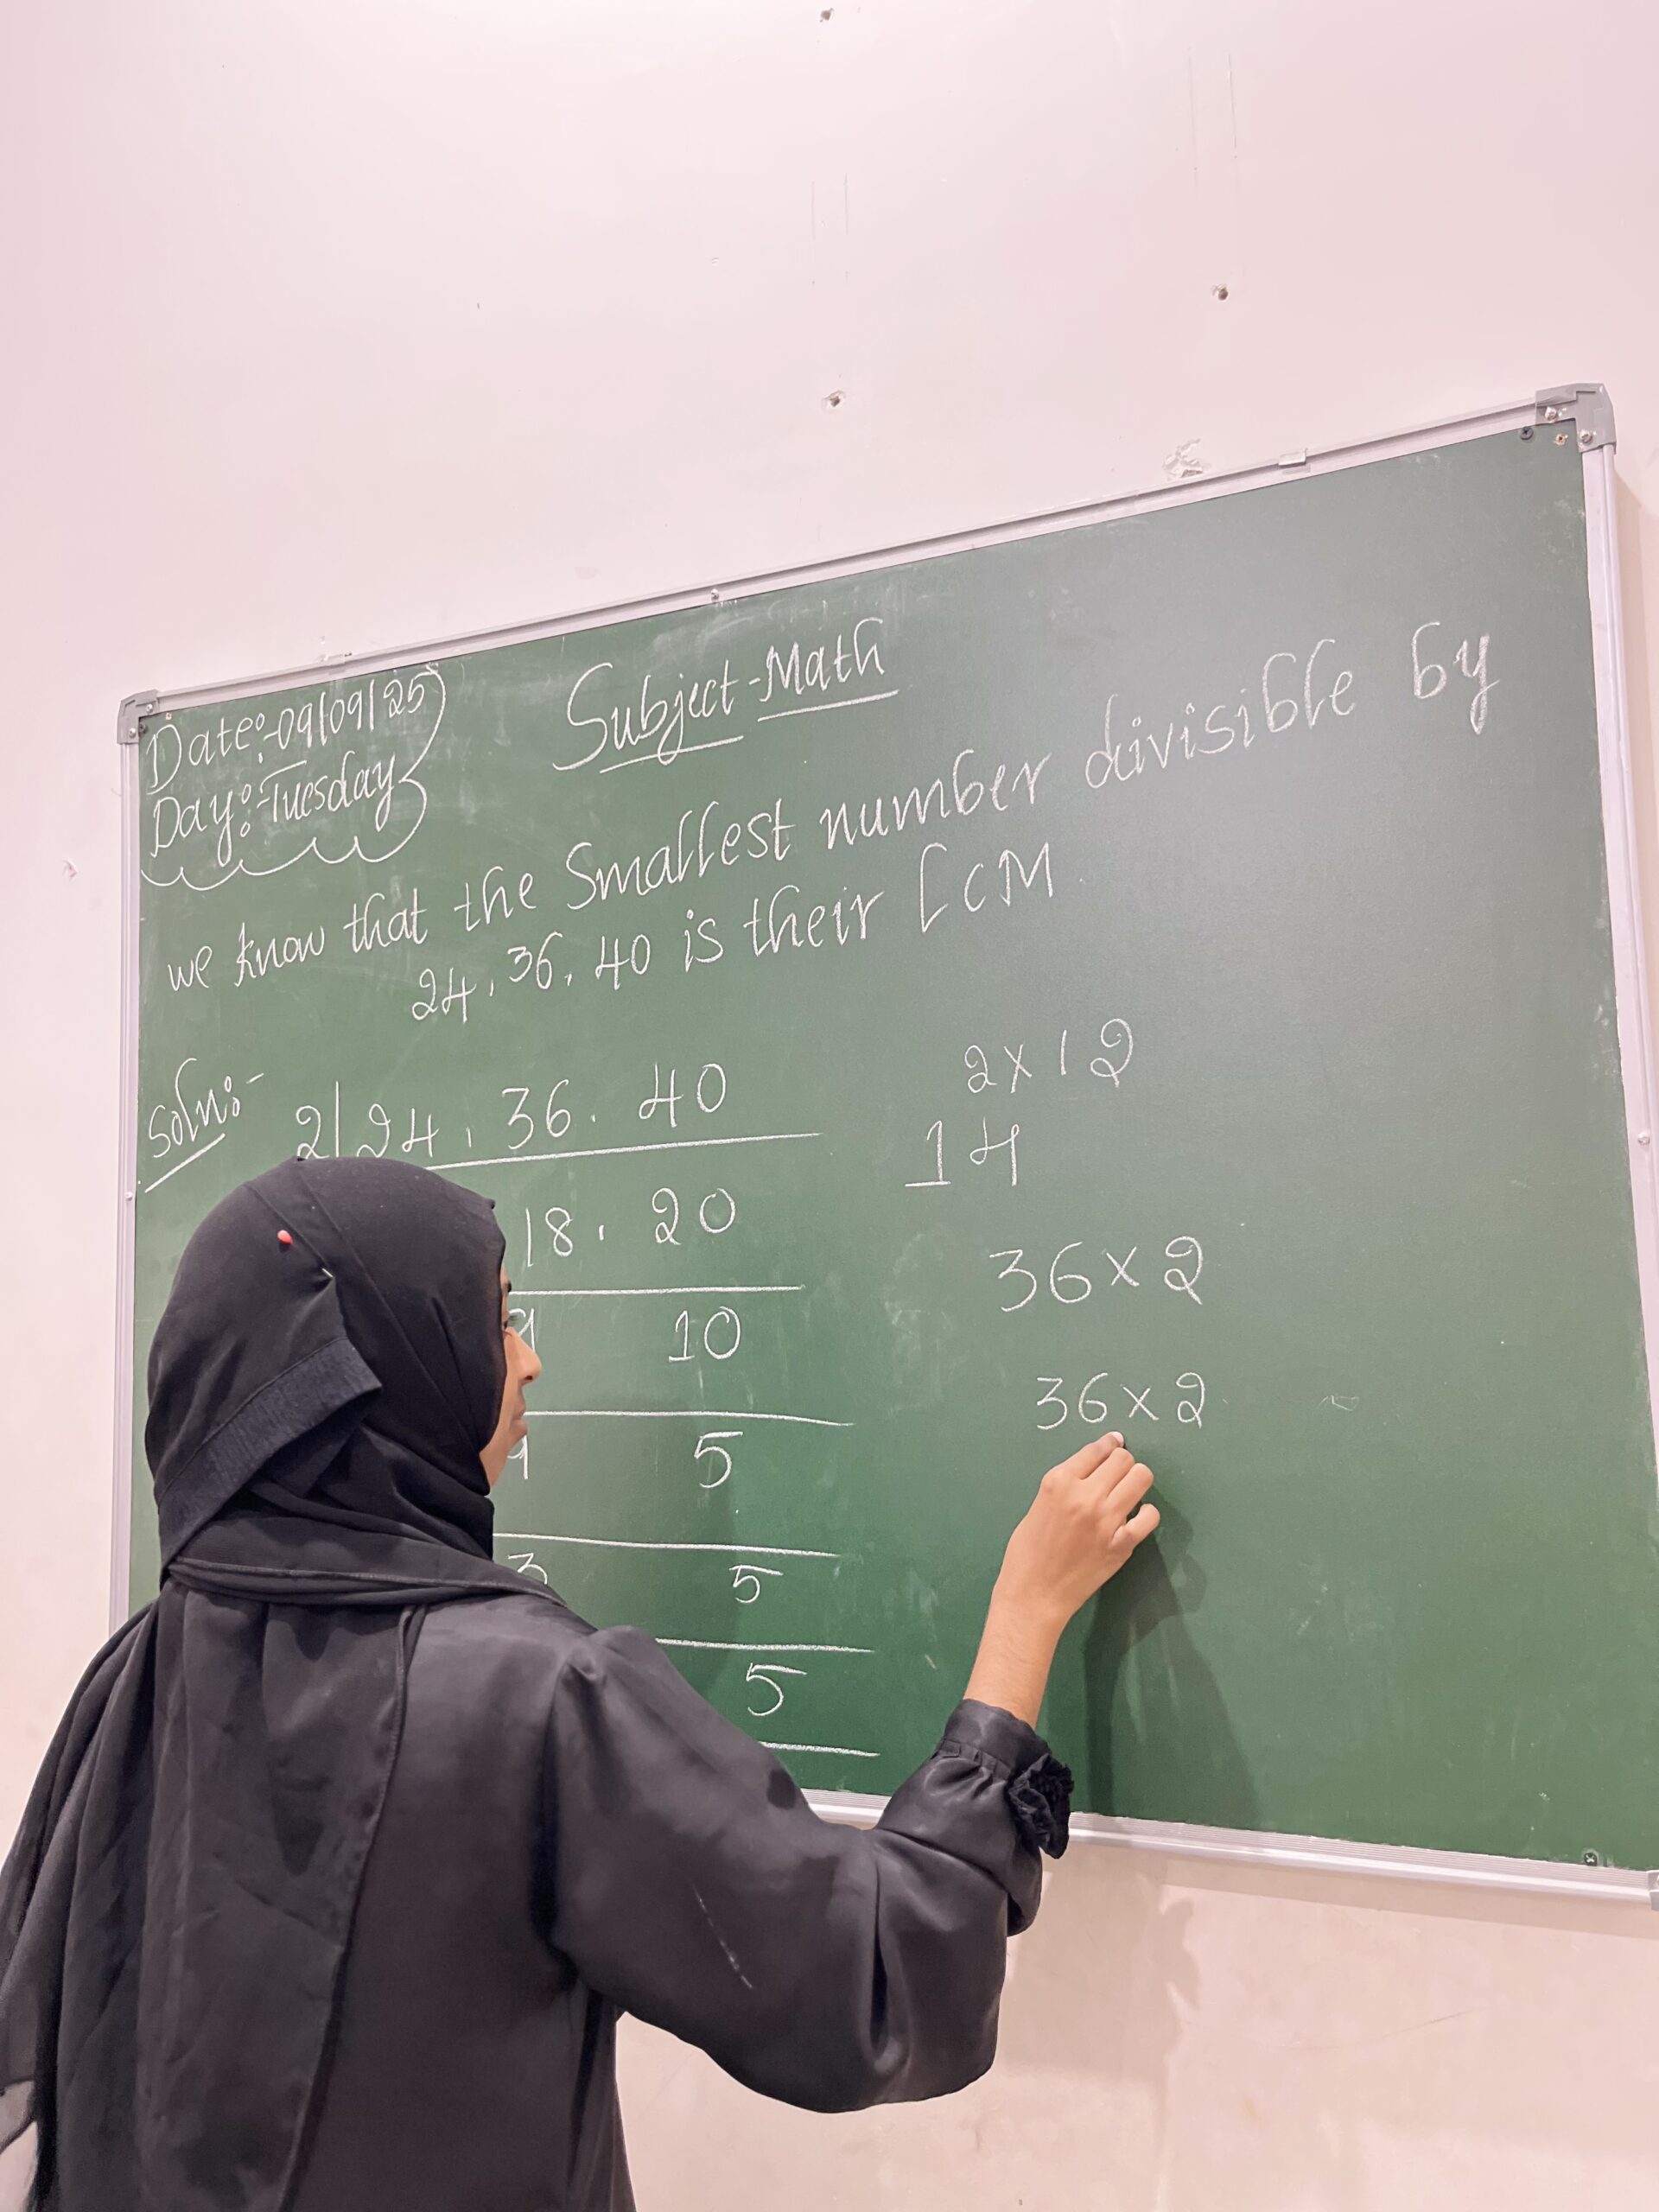 Date:-09/09/25
Day:-Tuesday
Subject-Math
we know that the Smallest number divisible by
24, 36, 40 is their LCM
Soln:-
2|24, 36. 40
18. 20
9 10
9 5
3 5
5
2x12
14
36x2
36x2